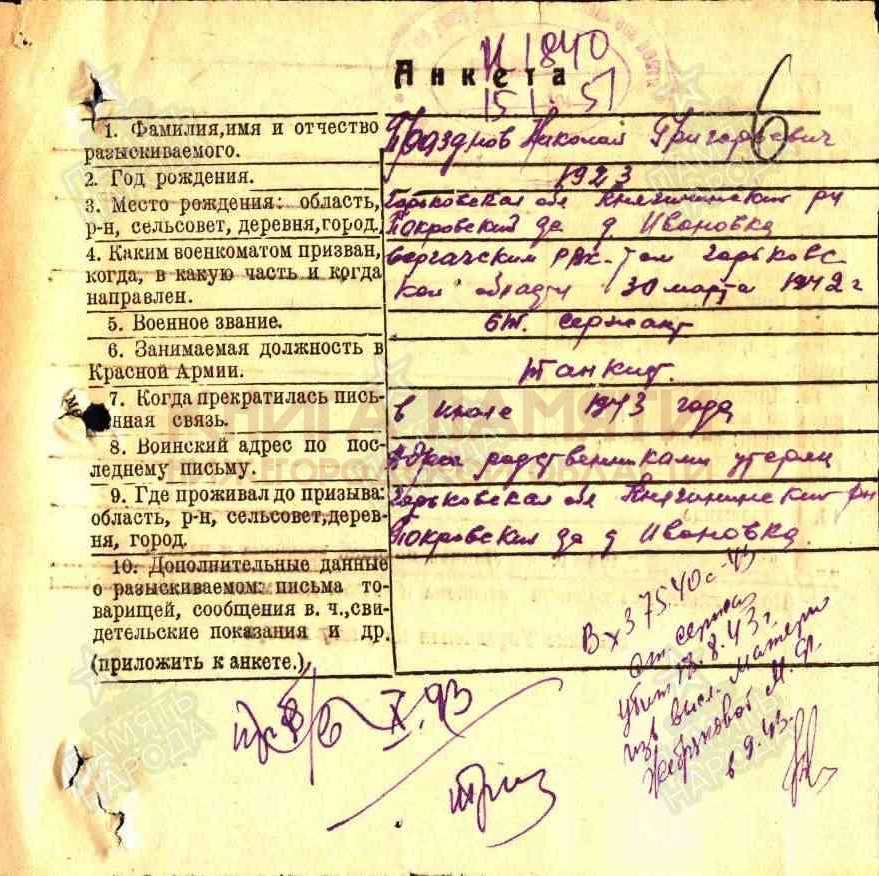 И 1840
Анкета
15.1.51
6
1. Фамилия,имя и отчество разыскиваемого.
Празднов Николай Григорьевич
2. Год рождения.
1923
3. Место рождения: область, р-н, сельсовет, деревня,город.
Горьковская обл Княгининский рн
Покровский д Ивановка
4. Каким военкоматом призван, когда, в какую часть и когда направлен.
Сергачским РВК-том Горьковс
кой области 30 марта 1942 г
5. Военное звание.
Ст. Сержант
6. Занимаемая должность в Красной Армии.
Танкист.
7. Когда прекратилась письменная связь.
в июле 1943 года
8. Воинский адрес по последнему письму.
Адрес родственниками утерян
9. Где проживал до призыва: область, р-н, сельсовет,деревня, город.
Горьковская обл Княгининский рн
Покровский д Ивановка
10. Дополнительные данные о разыскиваемом: письма товарищей, сообщения в. ч.,свидетельские показания и др. (приложить к анкете.)
Вх 37540с-43
ст. сержан
убит 18.8.43 г.
изв высл. Матери
М. Ф.
в 9.43.
X. 43
КНИГА ПАМЯТИ
НИЖЕГОРОДСКОЙ ОБЛАСТИ
ПАМЯТЬ НАРОДА